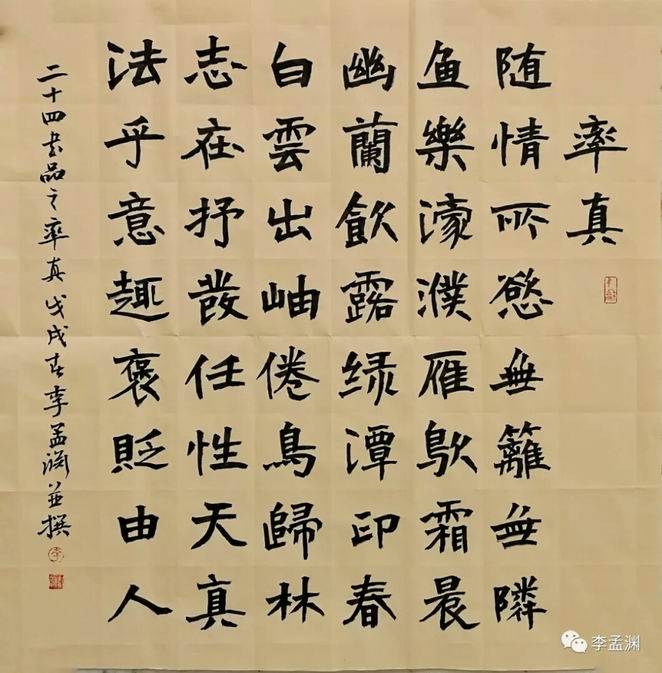 率真
随情所慾無籬無隣
鱼樂濠濮雁霜晨
幽蘭飲露绿潭印春
白雲出岫倦鳥歸林
志在抒發任性天真
法乎意趣褒貶由人
二十四书品之率真戊戌春李孟渊並撰
李
李孟渊